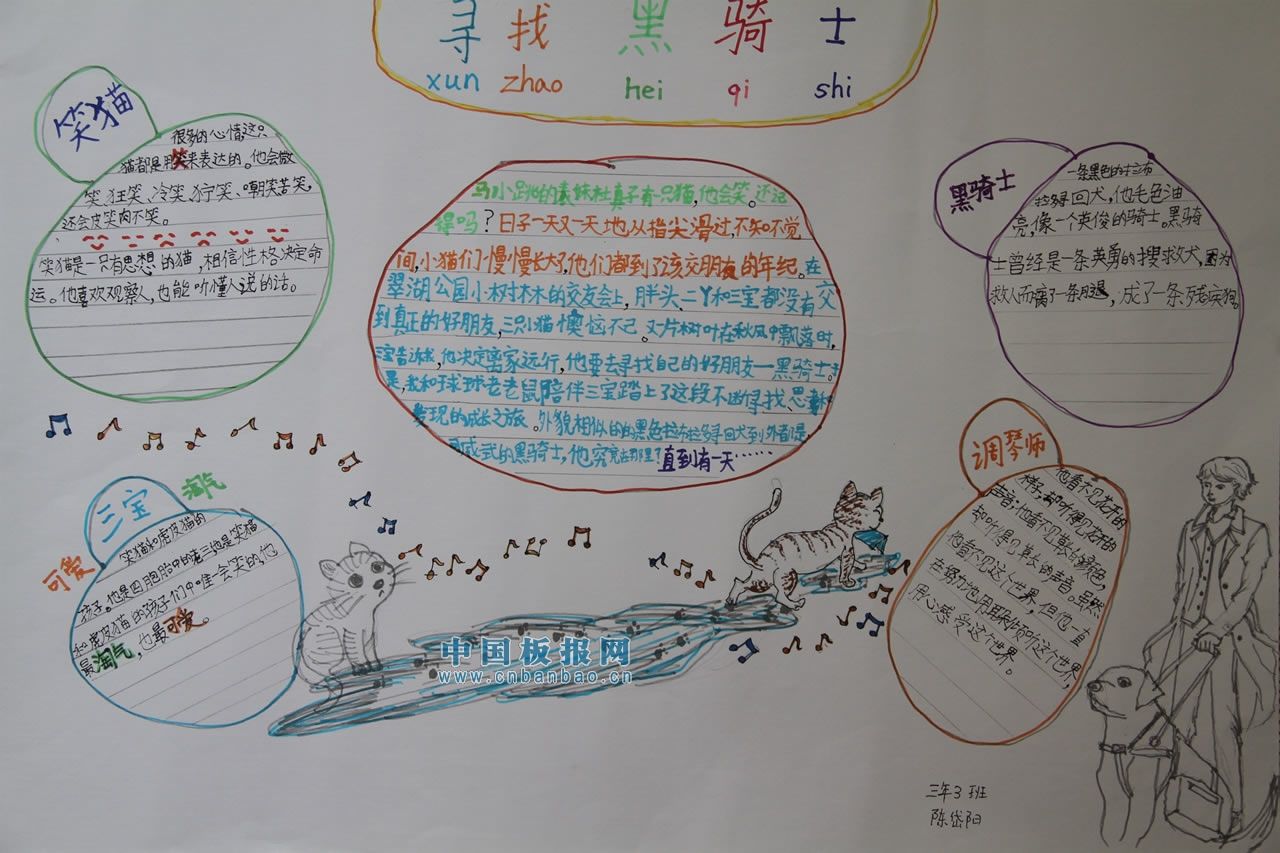 寻找黑骑士
xun zhao hei qi shi
笑猫
很多的心情,这只
猫都是用笑来表达的。他会微
笑、狂笑、冷笑、狞笑、嘲笑苦笑,
还会皮笑肉不笑。
笑猫是一只有思想的猫,相信性格决定命
运。他喜欢观察人,也能听懂人说的话。
马小跳的表妹杜真子有一只猫,他会笑。还记
得吗?日子一天又一天地从指尖滑过,不知不觉
间,小猫们慢慢长大了,他们都到了该交朋友的年纪。在
翠湖公园小树林的交友会上,胖头、二丫和三宝都没有交
到真正的好朋友,三只小猫懊恼不已。又片树叶在秋风中飘落时,
三宝告诉我,他决定离家远行,他要去寻找自己的好朋友—黑骑士。于
是,我和球球老老鼠陪伴三宝踏上了这段不断寻找、思考和
发现的成长之旅。外貌相似的的黑色拉布拉多寻回犬到处都是
的黑骑士,他究竟在那里?直到有一天……
黑骑士
一条黑色的拉布
拉多寻回犬,他毛色油
亮,像一个英俊的骑士。黑骑
士曾经是一条英勇的搜救犬,因为
救人而离了一条腿,成了一条残疾狗。
三宝
淘气
可爱
笑猫和虎皮猫的
孩子。他是四胞胎中的老三。他是笑猫
和虎皮猫的孩子们中唯一会笑的,他
最淘气,也最可爱。
调琴师
他看不见花开的
样子,却听得见花开的
声音;他看不见草的颜色,
却听得见草长的声音。虽然
他看不见这个世界,但他一直
在努力地用耳朵倾听这个世界,
用心感受这个世界。
中国板报网
www.cnbanbao.cn
三年3班
陈岱阳